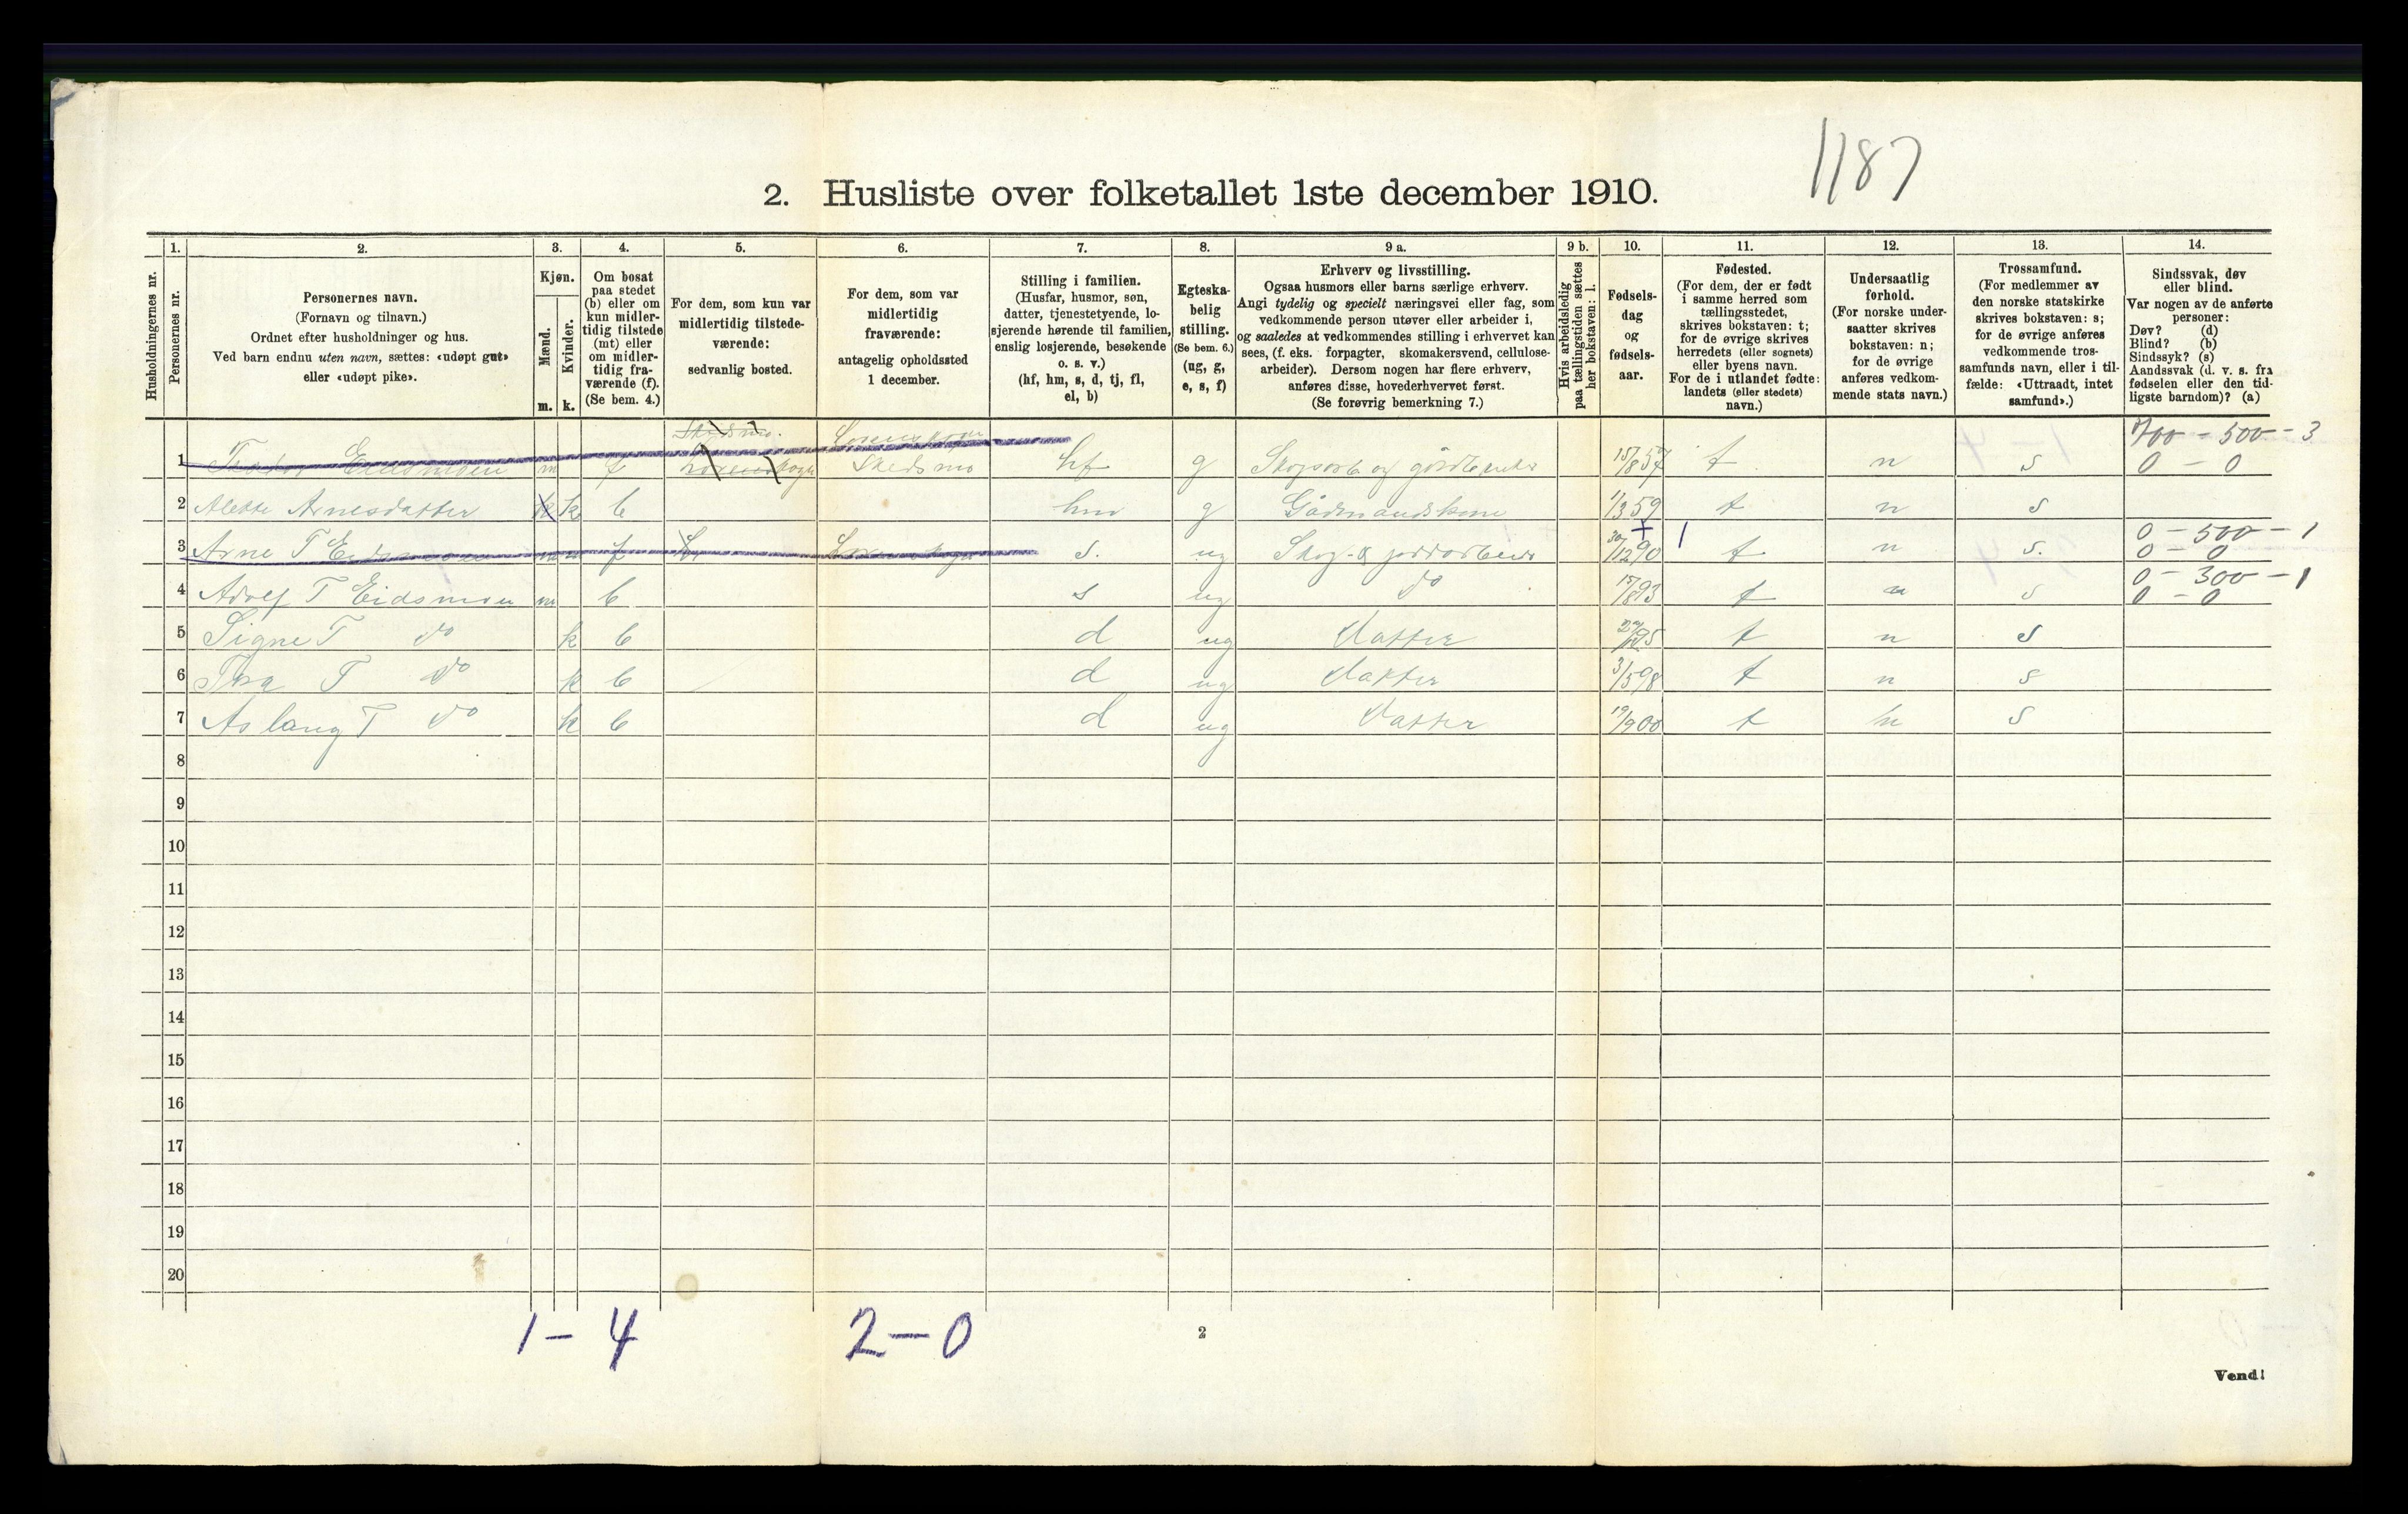 1187
2. Husliste over folketallet 1ste december 1910.
Husholdningernes nr.
1.
Personernes nr.
2.
Personernes navn.
(Fornavn og tilnavn.)
Ordnet efter husholdninger og hus.
Ved barn endnu uten navn, sættes: «udøpt gut»
eller «udøpt pike».
3.
Kjøn.
Mænd.
Kvinder.
m. k.
4.
Om bosat
paa stedet
(b) eller om
kun midler-
tidig tilstede
(mt) eller
om midler-
tidig fra-
værende (f).
(Se bem. 4.)
5.
For dem, som kun var
midlertidig tilstede-
værende:
sedvanlig bosted.
6.
For dem, som var
midlertidig
fraværende:
antagelig opholdssted
1 december.
7.
Stilling i familien.
(Husfar, husmor, søn,
datter, tjenestetyende, lo-
sjerende hørende til familien,
enslig losjerende, besøkende
o. s. v.)
(hf, hm, s, d, tj, fl,
el, b)
8.
Egteska-
belig
stilling.
(Se bem. 6.)
(ug, g,
e, s, f)
9 a.
Erhverv og livsstilling.
Ogsaa husmors eller barns særlige erhverv.
Angi tydelig og specielt næringsvei eller fag, som
vedkommende person utøver eller arbeider i,
og saaledes at vedkommendes stilling i erhvervet kan
sees, (f. eks. forpagter, skomakersvend, cellulose-
arbeider). Dersom nogen har flere erhverv,
anføres disse, hovederhvervet først.
(Se forøvrig bemerkning 7.)
9 b.
Hvis arbeidsledig
paa tællingstiden sættes
her bokstaven: l.
10.
Fødsels-
dag
og
fødsels-
aar.
11.
Fødested.
(For dem, der er født
i samme herred som
tællingsstedet,
skrives bokstaven: t;
for de øvrige skrives
herredets (eller sognets)
eller byens navn.
For de i utlandet fødte:
landets (eller stedets)
navn.)
12.
Undersaatlig
forhold.
(For norske under-
saatter skrives
bokstaven: n;
for de øvrige
anføres vedkom-
mende stats navn.)
13.
Trossamfund.
(For medlemmer av
den norske statskirke
skrives bokstaven: s;
for de øvrige anføres
vedkommende tros-
samfunds navn, eller i til-
fælde: «Uttraadt, intet
samfund».)
14.
Sindssvak, døv
eller blind.
Var nogen av de anførte
personer:
Døv? (d)
Blind? (b)
Sindssyk? (s)
Aandssvak (d. v. s. fra
fødselen eller den tid-
ligste barndom)? (a)
Skedsmo. 700 - 500 - 3
1 m f Skedsmo hf g 15/8 57 t n s 0 - 0
2 Alette Arnesdatter k b hm g Gårdmandskone 11/3 59 t n s
0 - 500 - 1
3 Arne T Eidsmoen m f s. ug 30/12 90 t n s. 0 - 0
0 - 300 - 1
4 Adolf T Eidsmoen m b s ug do 15/8 93 t n s 0 - 0
5 Signe T do k b d ug Datter 95 t n s
6 T do k b d ug Datter 3/5 98 t n s
7 Aslaug T do k b d ug Datter 19/9 00 t n s
8
9
10
11
12
13
14
15
16
17
18
19
20
1 - 4 2 - 0
2
Vend!